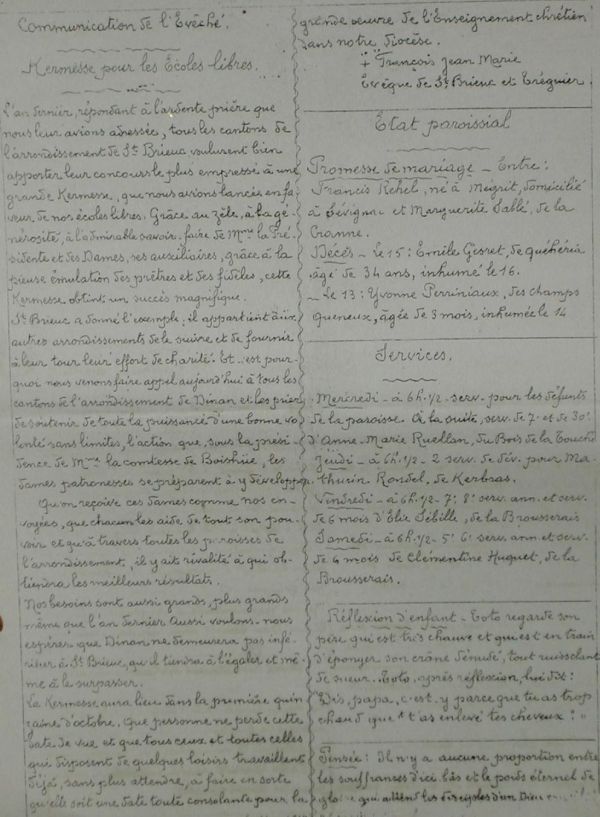 Communication de l'Evêché.
Kermesse pour les Ecoles libres.
L'an dernier, répondant à l'ardente prière que
nous leur avions adressée, tous les cantons de
l'arrondissement de St Brieuc voulurent bien
apporter leur concours le plus empressé à une
grande Kermesse, que nous avions lancée en fa-
veur de nos écoles libres. Grâce au zèle, à la gé-
nérosité, à l'admirable savoir-faire de Mme la Pré-
sidente et des Dames, ses auxiliaires, grâce à la
pieuse émulation des prêtres et des fidèles, cette
Kermesse obtint un succès magnifique.
St Brieuc a donné l'exemple; il appartient aux
autres arrondissements de le suivre et de fournir
à leur tour leur effort de charité. Et c'est pour-
quoi nous venons faire appel aujourd'hui à tous les
cantons de l'arrondissement de Dinan et les prier
de soutenir de toute la puissance d'une bonne vo-
lonté sans limites, l'action que, sous la prési-
dence de Mme la comtesse de Boishue, les
dames patronesses se préparent à y développer
Qu'on reçoive ces dames comme nos en-
voyées, que chacun les aide de tout son pou-
voir et qu'à travers toutes les paroisses de
l'arrondissement, il y ait rivalité à qui ob-
tiendra les meilleurs résultats.
Nos besoins sont aussi grands, plus grands
même que l'an dernier. Aussi voulons-nous
espérer que Dinan ne demeurera pas infé-
rieur à St Brieuc, qu'il tiendra à l'égaler et mê-
me à le surpasser.
La Kermesse aura lieu dans la première quin-
zaine d'octobre. Que personne ne perde cette
date de vue et que tous ceux et toutes celles
qui disposent de quelques loisirs travaillent
déjà, sans plus attendre, à faire en sorte
qu'elle soit une date toute consolante pour la
grande oeuvre de l'Enseignement chrétien
dans notre diocèse.
+ François Jean Marie
Evêque de St Brieuc et Tréguier
Etat paroissial
Promesse de mariage - Entre:
Francis Rehel, né à Mégrit, domicilié
à Sévignac et Marguerite Sablé, de la
Cranne.
Décès - Le 15: Emile Gesret, de Quéhéria
âgé de 34 ans, inhumé le 16.
- Le 13: Yvonne Perriniaux, des champs
queneux, âgée de 3 mois, inhumée le 14
Services.
Mercredi - à 6h.1/2 - serv. pour les défunts
de la paroisse. A la suite, serv. de 7e et de 30e
d'Anne-Marie Ruellan, du Bois de la Touche
Jeudi - à 6h.1/2 - 2 serv. de dév. pour Ma-
thurin Rondel, de Kerbras.
Vendredi - à 6h.1/2 - 7e 8e serv. ann. et serv.
de 6 mois d'Elie Sébille, de la Brousserais
Samedi - à 6h.1/2 - 5e 6e serv. ann. et serv.
de 6 mois de Clémentine Huguet, de la
Brousserais.
Réflexion d'enfant - Toto regarde son
père qui est très chauve et qui est en train
d'éponger son crâne dénudé, tout ruisselant
de sueur. Toto, après réflexion, lui dit:
"Dis, papa, c'est-y parce que tu as trop
chaud que t'as enlevé tes cheveux? "
Pensée: Il n'y a aucune proportion entre
les souffranses d'ici bas et le poids éternel de
gloire qui attend les disciples d'un Dieu